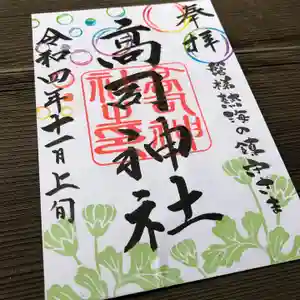 奉拝
磐梯熱海の鎮守さま
高司神社
高司神
社之印
令和四年十一月上旬